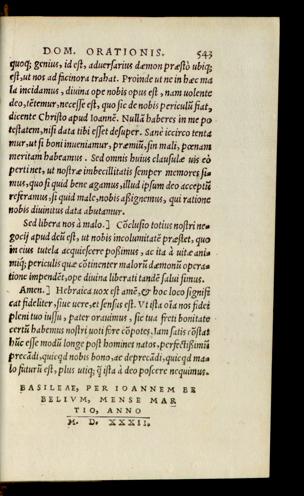 DOM. ORATIONIS. 543
quoq; genius, id est, aduersarius dæmon præstò ubiq;
est, ut nos ad facinora trahat. Proinde ut ne in hæc ma
la incidamus, diuina ope nobis opus est, nam uolente
deo, tẽtemur, necesse est, quo sic de nobis periculũ fiat,
dicente Christo apud Ioannẽ. Nullã haberes in me po
testatem, nisi data tibi esset desuper. Sanè iccirco tenta
mur, ut si boni inueniamur, præmiũ, sin mali, pœnam
meritam habeamus. Sed omnis huius clausulæ uis eò
pertinet, ut nostræ imbecillitatis semper memores si-
mus, quo si quid bene agamus, illud ipsum deo acceptũ
referamus, si quid male, nobis aßignemus, qui ratione
nobis diuinitus data abutamur.
Sed libera nos à malo.] Cõclusio totius nostri ne-
gocij apud deũ est, ut nobis incolumitatẽ præstet, quo
in eius tutela acquiescere poßimus, ac ita à uitæ ani-
miq́; periculis quæ cõtinenter malorũ dæmonũ opera-
tione impendẽt, ope diuina liberati tandẽ salui simus.
Amen.] Hebraica uox est amẽ, & hoc loco signifi
cat fideliter, siue uere, et sensus est. Vt ista oĩa nos fidei
pleni tuo iussu, pater orauimus, sic tua freti bonitate
certũ habemus nostri uoti fore cõpotes. Iam satis cõstat
hũc esse modũ longe post hominet natos, perfectißimũ
precãdi, quicqd nobis bono, ac deprecãdi, quicqd ma-
lo futurũ est, plus utiq; q̃ ista à deo poscere nequimus.
BASILEAE, PER IOANNEM BE
BELIVM, MENSE MAR
TIO, ANNO
M. D. XXXII.